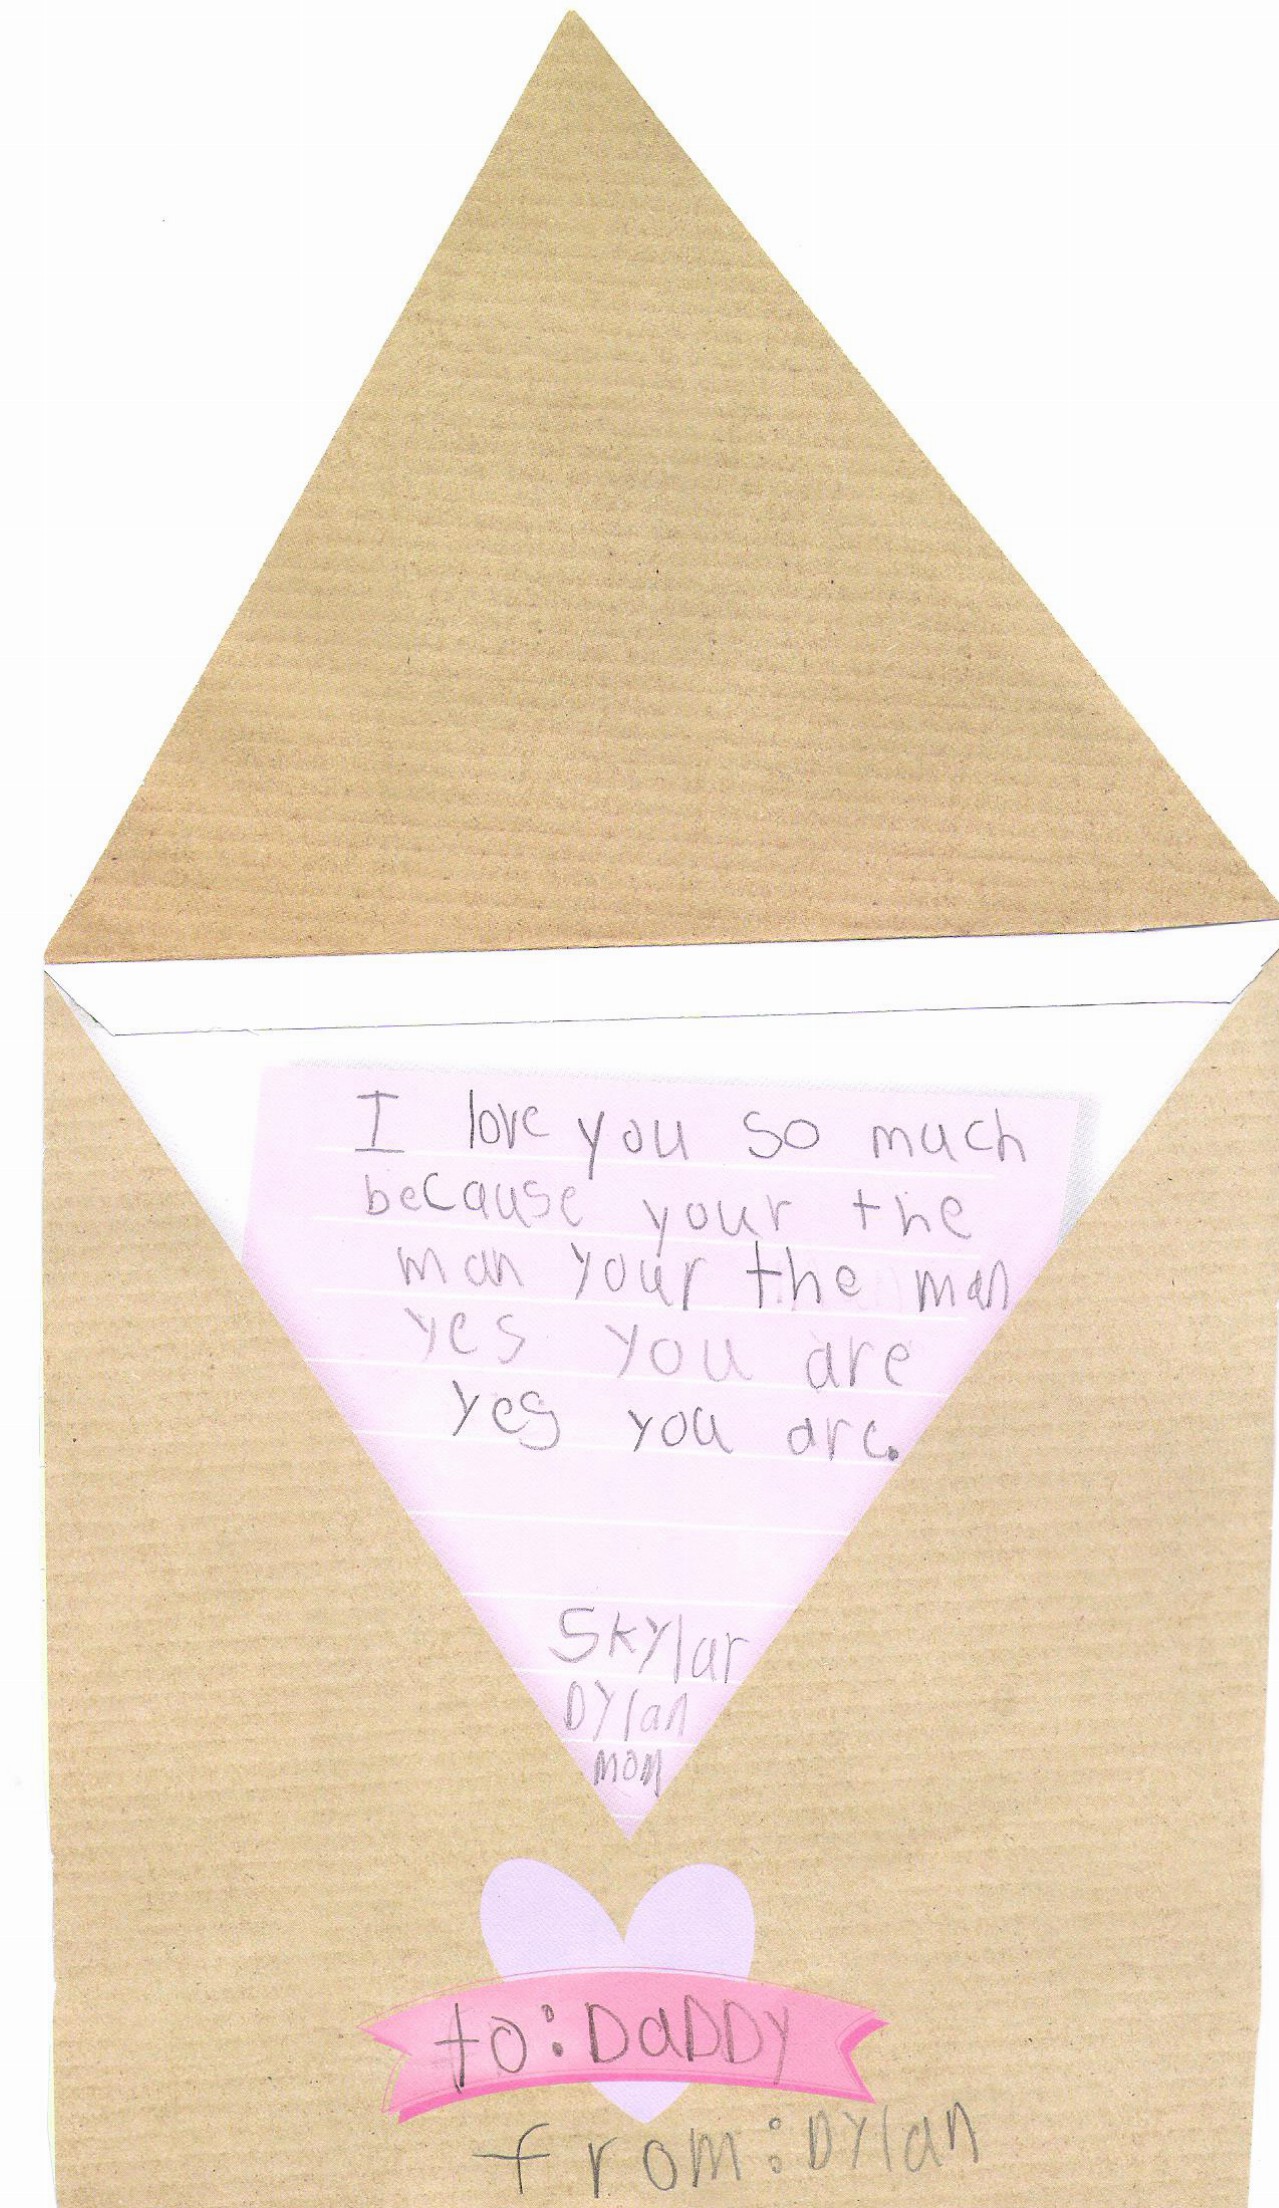 I love you so much
because your the
man your the man
yes you are
yes you are.
Skylar
Dylan
mom
to: DaDDy
from: Dylan